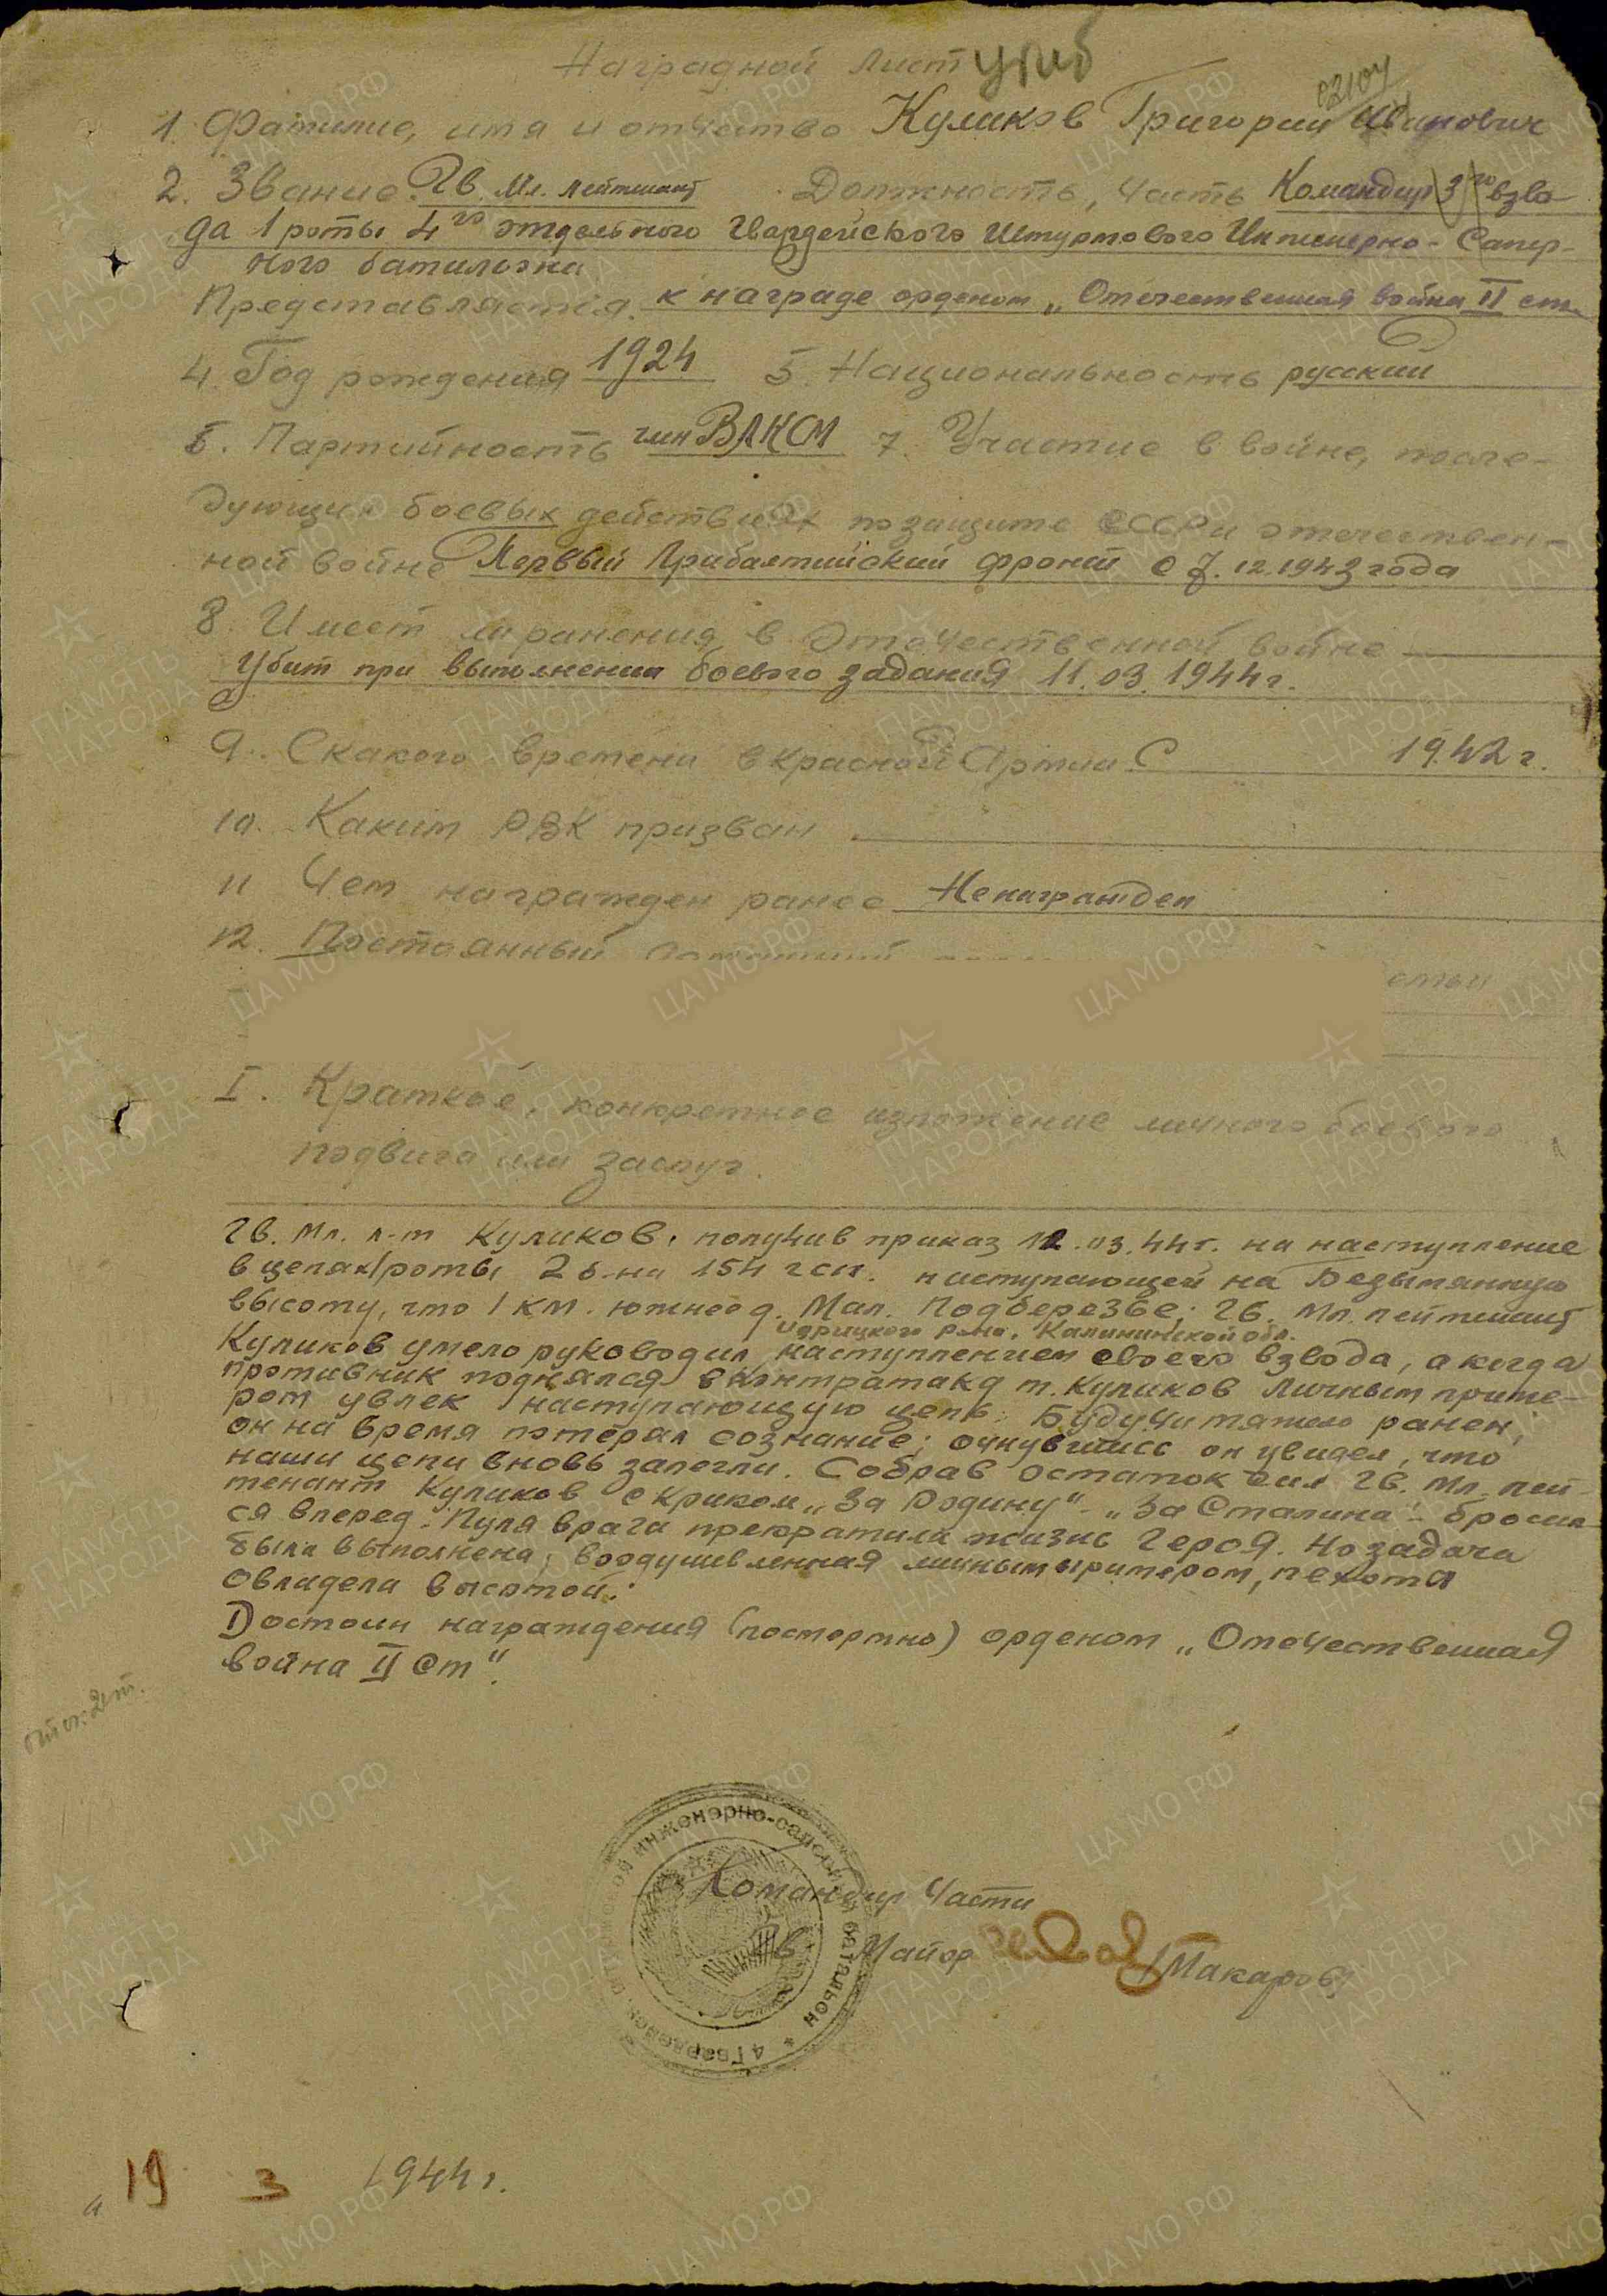 Наградной лист
убит
1. Фамилие, имя и отчество Куликов Григорий Иванович
2. Звание Гв. Мл. лейтенант Должность, часть Командир 3го взво-
да 1 роты 4го отдельного Гвардейского Штурмового Инженерно-Сапер-
ного батальона
Представляется к награде орденом „Отечественная война II ст.
4. Год рождения 1924 5. Национальность русский
6. Партийность член ВЛКСМ 7. Участие в войне, после-
дующих боевых действиях по защите СССР и отечествен-
ной войне Первый Прибалтийский фронт с 7.12.1943 года
8. Имеет ли ранения в Отечественной войне
Убит при выполнении боевого задания 11.03.1944 г.
9. С какого времени в Красной Армии С 1942 г.
10. Каким РВК призван
11 Чем награжден ранее Ненагражден
12. Постоянный
I. Краткое, конкретное изложение личного боевого
подвига или заслуг.
Гв. Мл. л-т Куликов, получив приказ 12.03.44 г. на наступление
в цепях 1 роты 2 б-на 154 гсп. наступающей на Безымянную
высоту, что 1 км. южнее д. Мал. Подберезье; гв. мл. лейтенант
Идрицкого р-на, Калининской обл.
Куликов умело руководил наступлением своего взвода, а когда
противник поднялся в контратаку т. Куликов личным приме-
ром увлек наступающую цепь. Будучи тяжело ранен,
он на время потерял сознание; очнувшись он увидел, что
наши цепи вновь залегли. Собрав остаток сил гв. мл. лей-
тенант Куликов с криком „За Родину" - „За Сталина" - бросил-
ся вперед. Пуля врага прекратила жизнь Героя. Но задача
была выполнена; воодушевленная личным примером, пехота
овладела высотой.
Достоин награждения (посмертно) орденом „Отечественная
война II ст".
Командир Части
Гв Майор /Макаров/
инженерно-саперный батальон * 4 Гвардейск.
„ 19 3 1944 г.
ПАМЯТЬ НАРОДА
ЦА МО РФ